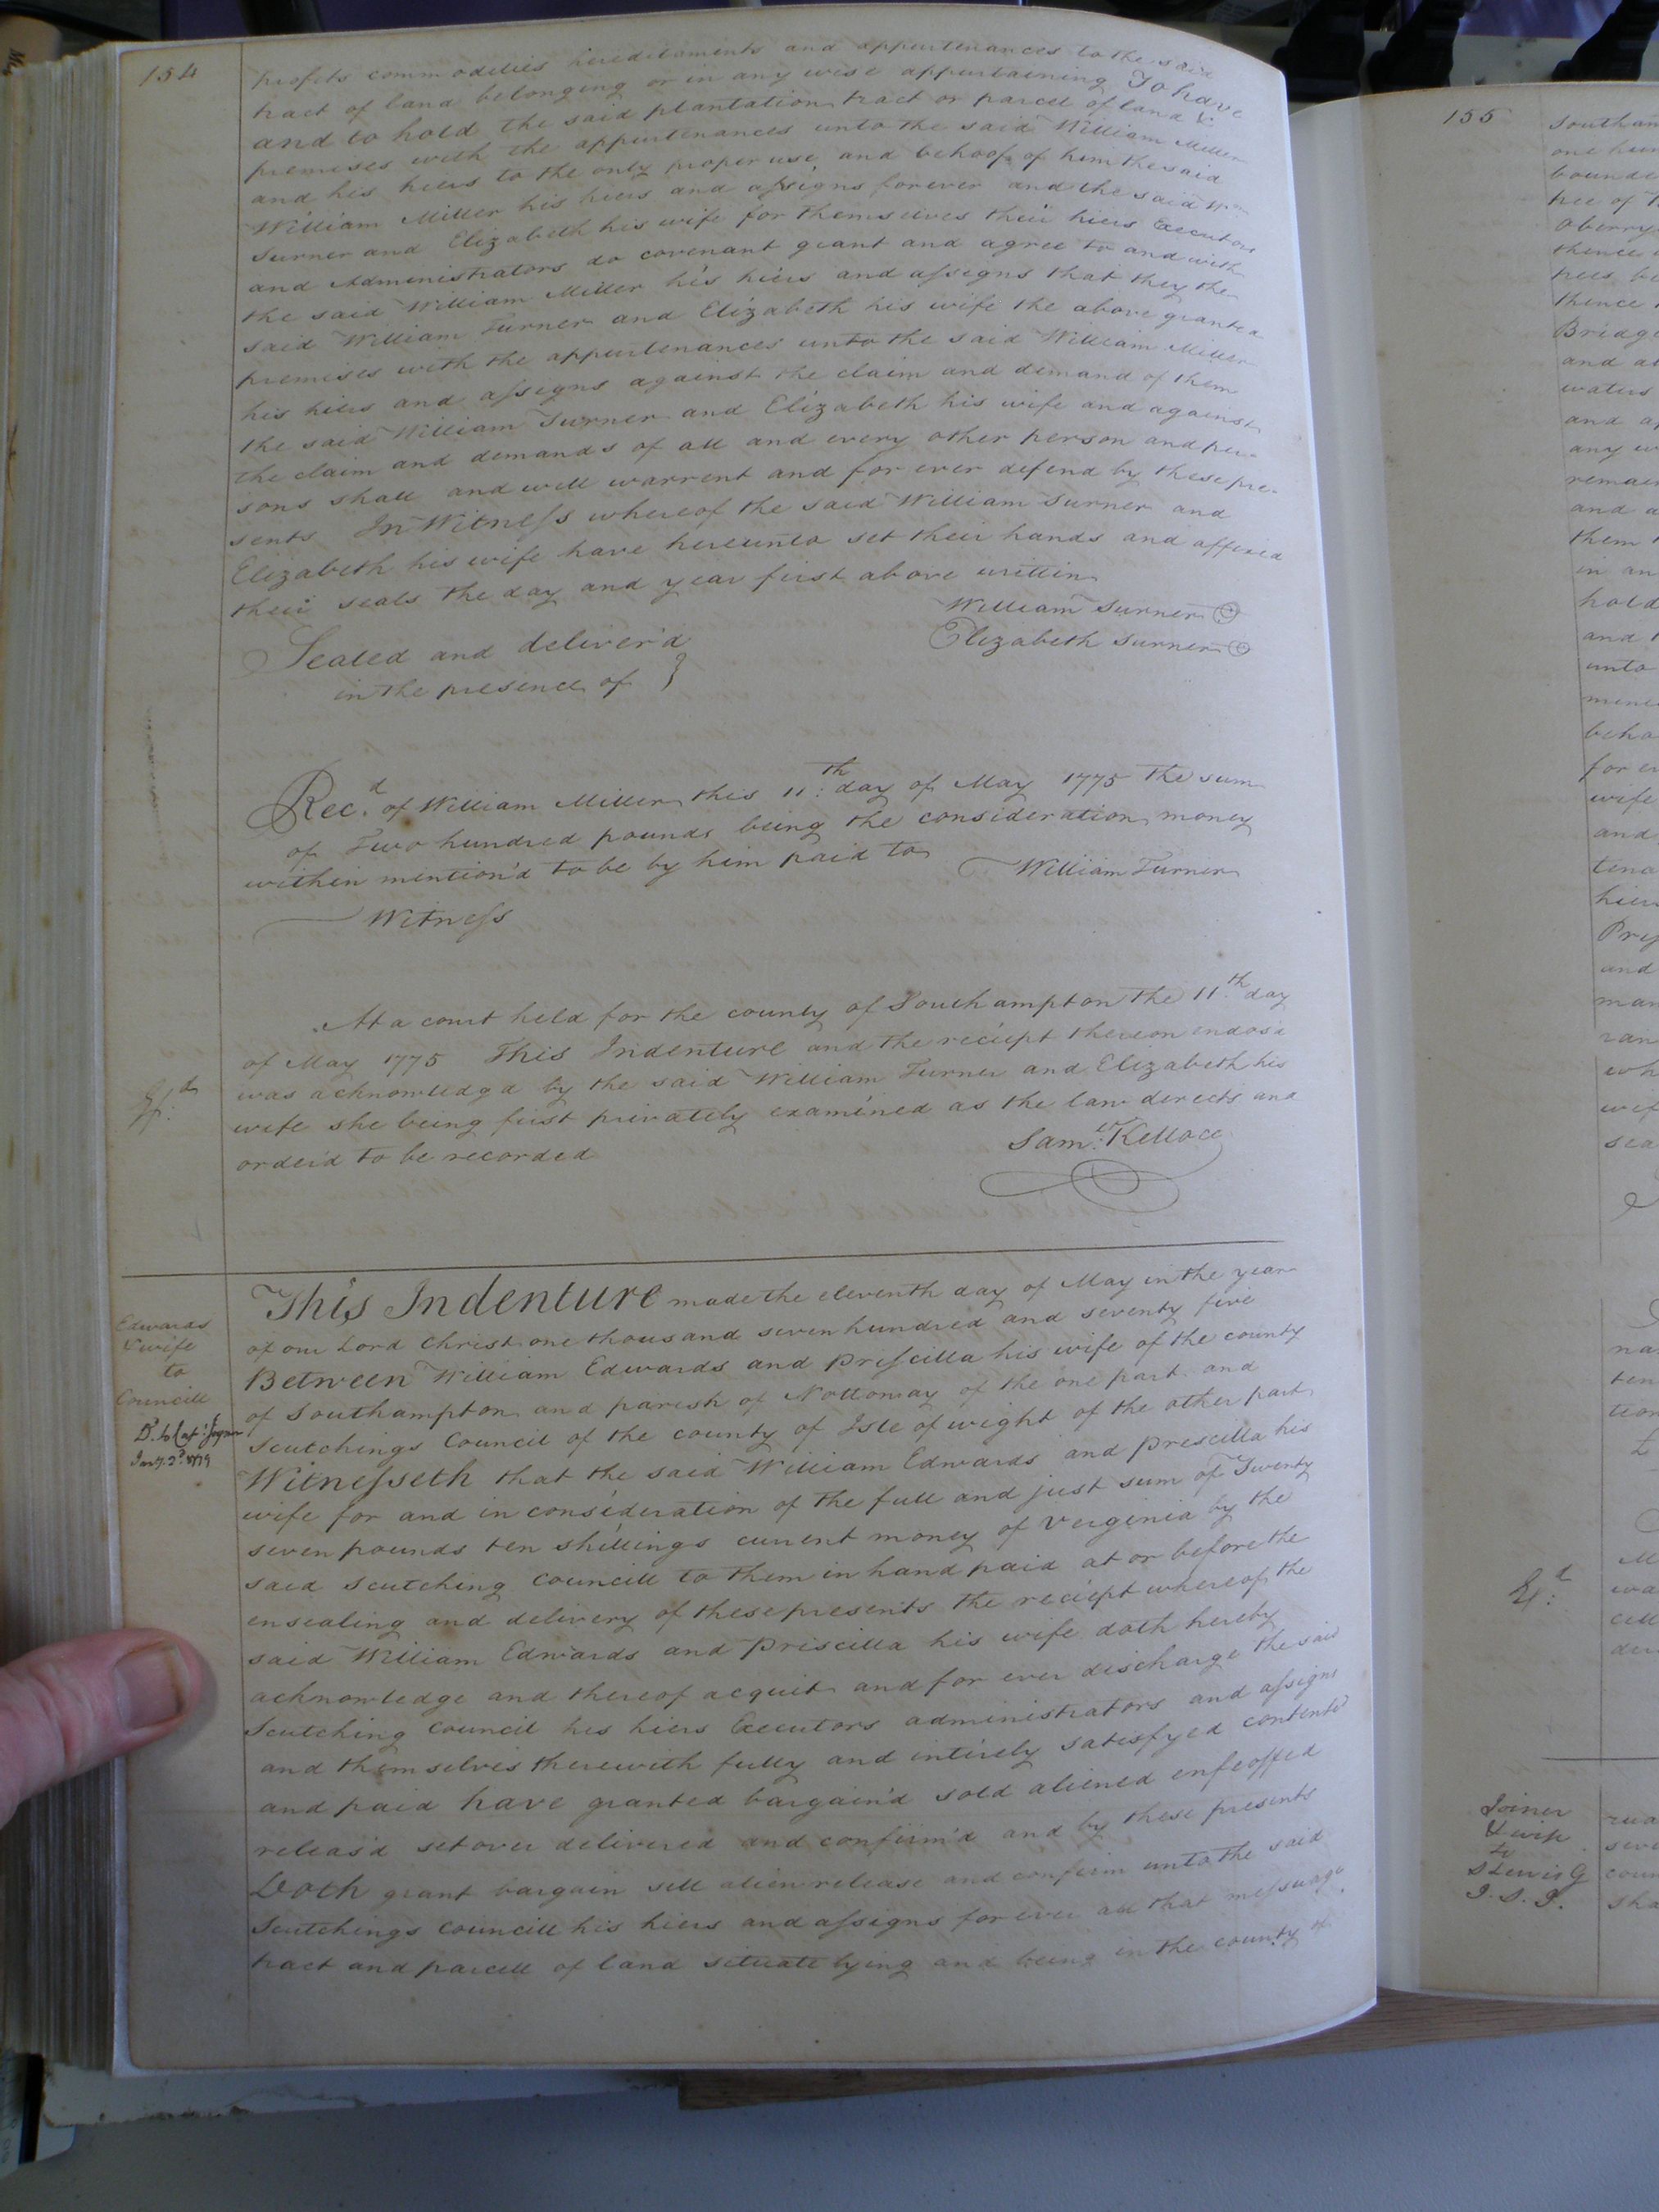 154
profits commodities hereditaments and appurtenances to the said
tract of land belonging or in any wise appurtaining To have
and to hold the said plantation tract or parcel of land &
premises with the appurtenances unto the said William Miller
and his hiers to the only proper use and behoof of him the said
William Miller his hiers and assigns forever and the said Wm
Turner and Elizabeth his wife for themselves their hiers Executors
and Administrators do covenant grant and agree to and with
the said William Miller his hiers and assigns that they the
said William Turner and Elizabeth his wife the above granted
premises with the appurtenances unto the said William Miller
his hiers and assigns against the claim and demand of them
the said William Turner and Elizabeth his wife and against
the claim and demands of all and every other person and per-
sons shall and will warrent and for ever defend by these pre-
sents In Witness whereof the said William Turner and
Elizabeth his wife have hereunto set their hands and affixed
their seals the day and year first above writtin
William Turner
Elizabeth Turner
Sealed and deliver'd
in the presence of }
Recd. of William Miller this 11th day of May 1775 the sum
of Two hundred pounds being the consideration money
within mention'd to be by him paid to
William Turner
Witness
At a court held for the county of Southampton the 11th day
of May 1775 This Indenture and the reciept thereon endos'd
was acknowledgd by the said William Turner and Elizabeth his
wife she being first privately examined as the law directs and
order'd to be recorded
Saml. Kelloce
This Indenture made the eleventh day of May in the year
of our Lord Christ one thousand seven hundred and seventy five
Between William Edwards and Priscilla his wife of the county
of Southampton and parish of Nottoway of the one part and
Scutchings Council of the county of Isle of wight of the other part
Witnesseth that the said William Edwards and prescilla his
wife for and in consideration of the full and just sum of Twenty
seven pounds ten shillings current money of Verginia by the
said Scutching Councill to them in hand paid at or before the
ensealing and delivery of these presents the reciept whereof the
said William Edwards and Priscilla his wife doth hereby
acknowledge and thereof acquit and for ever discharge the said
Scutching Council his hiers Executors administrators and assigns
and themselves therewith fully and intirely satisfyed contented
and paid have granted bargain'd sold aliened enfeoffed
releas'd set over delivered and confirm'd and by these presents
Doth grant bargain sell alien release and confirm unto the said
Scutchings Councill his hiers and assigns for ever all that messuage
tract and parcell of land situate lying and being in the county of
Edwards
& wife
to
Councill
Jany. 2d 1779
155
Southam
bounde
tree of
thence
thence
Bridge
and
waters
and
any
remain
and a
them
in an
hold
and
unto
behal
for ev
wife
and
hiers
and
Joiner
& wife
to
S Lewis G
J. S. J.